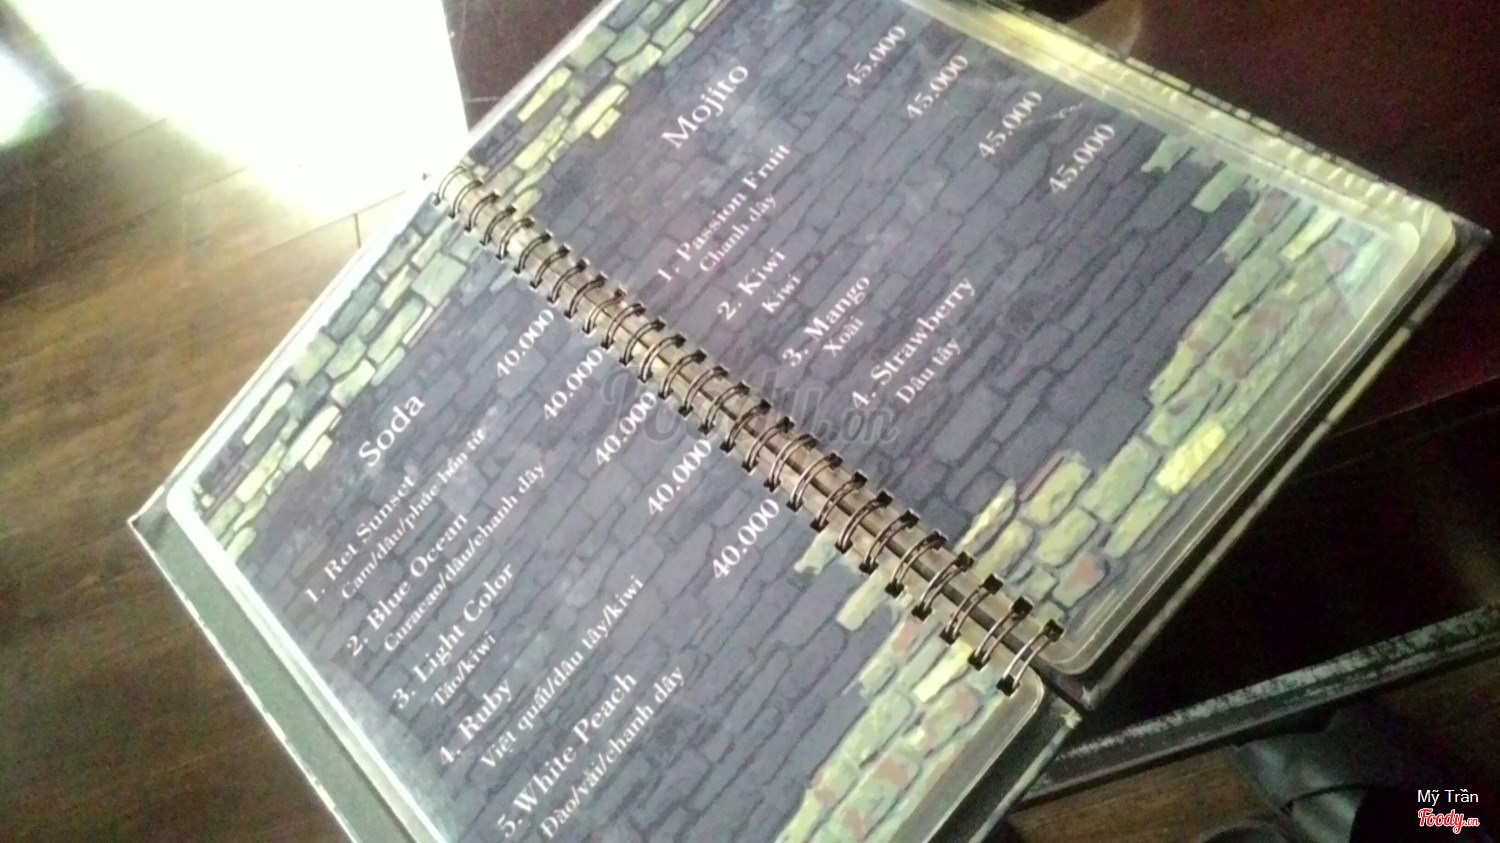 Soda
1. Ret Sunset 40.000
Cam/dâu/phúc bồn tử
2. Blue Ocean 40.000
Curacao/dâu/chanh dây
3. Light Color 40.000
Táo/kiwi
4. Ruby 40.000
Việt quất/dâu tây/kiwi
5. White Peach 40.000
Đào/vải/chanh dây
Mojito
1. Passion Fruit 45.000
Chanh dây
2. Kiwi 45.000
Kiwi
3. Mango 45.000
Xoài
4. Strawberry 45.000
Dâu tây
Foody.vn
Mỹ Trần
Foody.vn